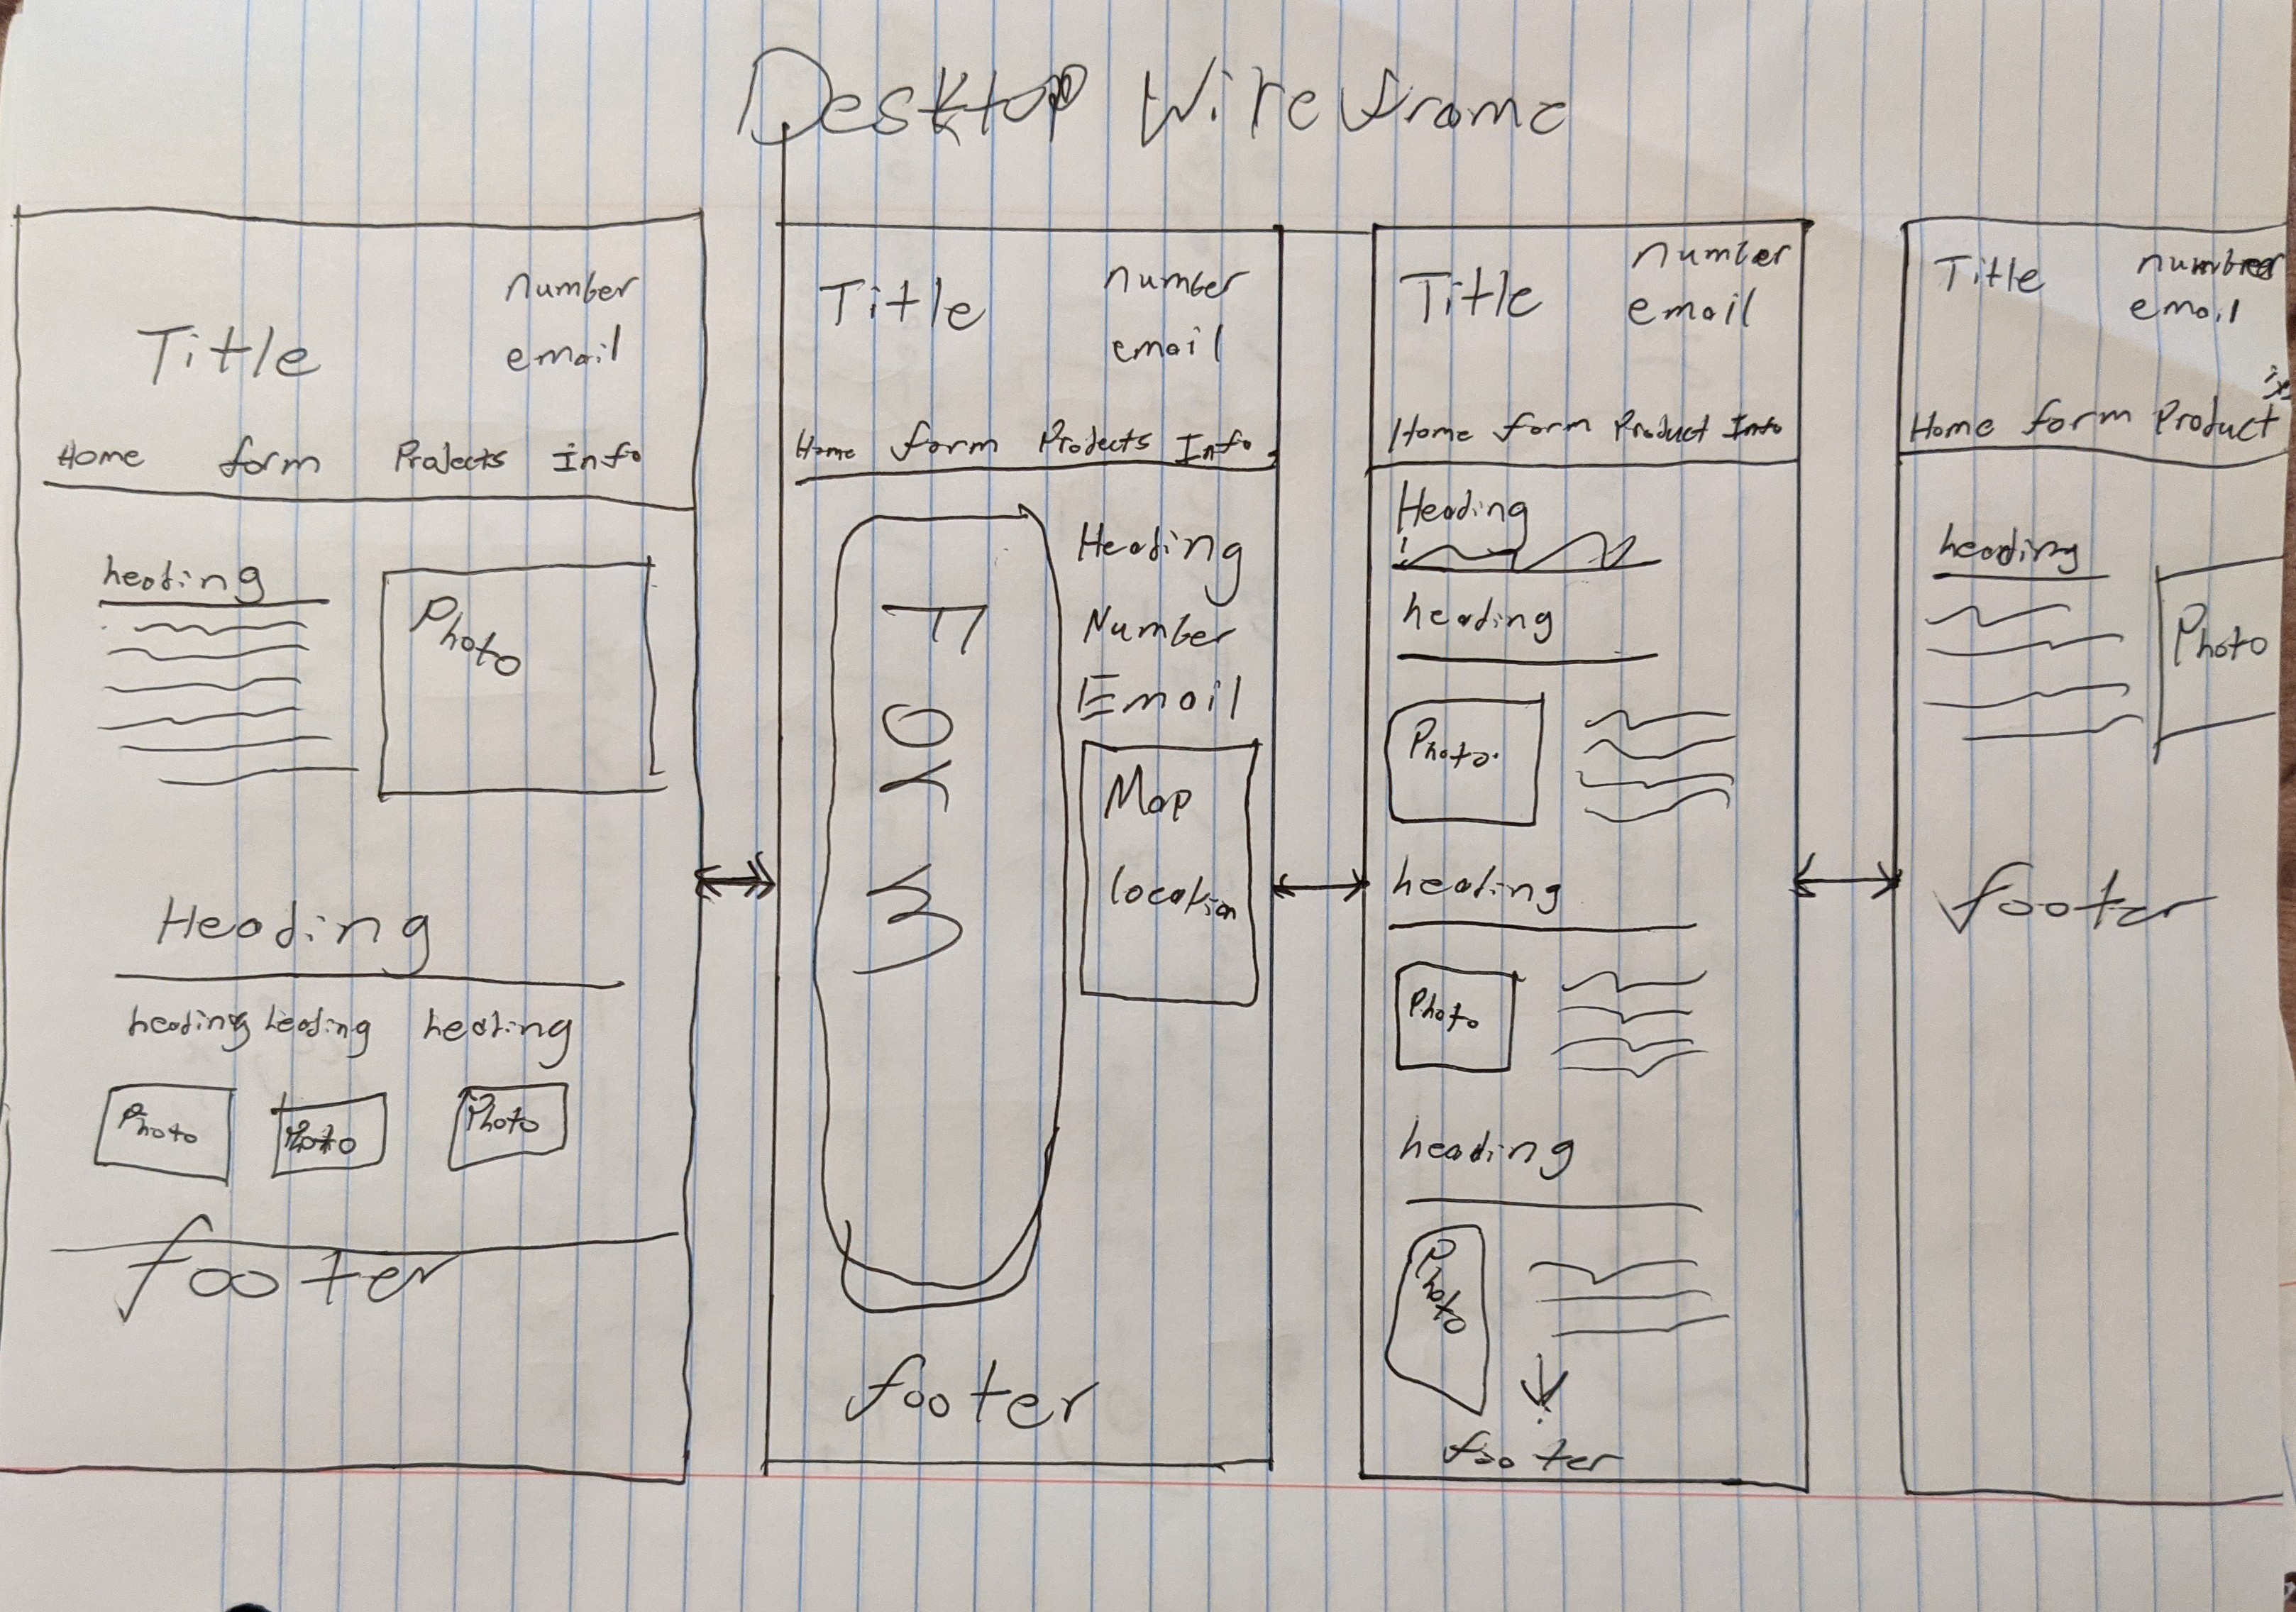 Desktop Wireframe
number
Title
email
Home form Projects Info
heading
Photo
Heading
heading heading heading
Photo Photo Photo
footer
number
Title
email
Home form Projects Info
Form
Heading
Number
Email
Map
location
footer
number
Title
email
Home form Product Info
Heading
heading
Photo
heading
Photo
heading
Photo
footer
Title number
email
Home form Product
heading
Photo
footer